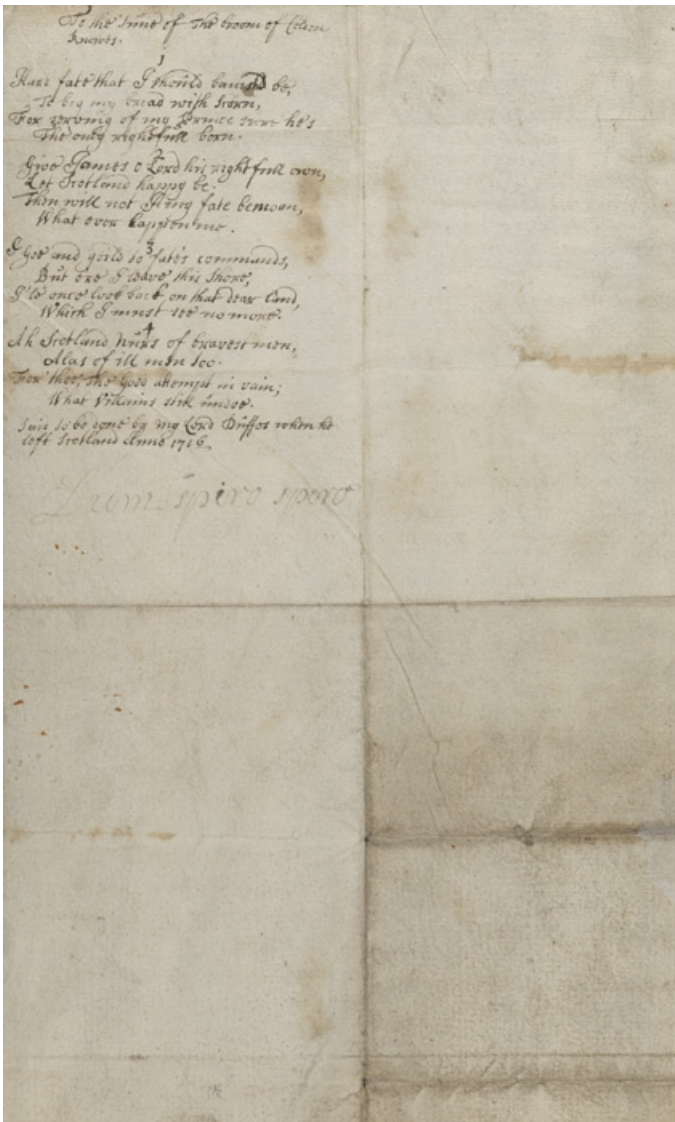 To the tune of the broom of Colden
knowes.
1
Hard fate that I should banisd be,
To beg my bread with scorn,
For serving of my Prince sure he's
The only rightfull born.
2
Give James o Lord his rightfull own,
Let Scotland happy be.
Then will not I my fate bemoan,
What ever happen me.
3
I goe and yeild to fate's commands,
But ere I leave this shore,
I'le once look back, on that dear land,
Which I must see no more.
4
Ah Scotland nurs of bravest men,
Alas of ill men too.
For thee, the good attempt in vain;
What villains still undoe.
Said to be done by my Lord Duffos when he
left Scotland Anno 1716.
Dum spiro spero